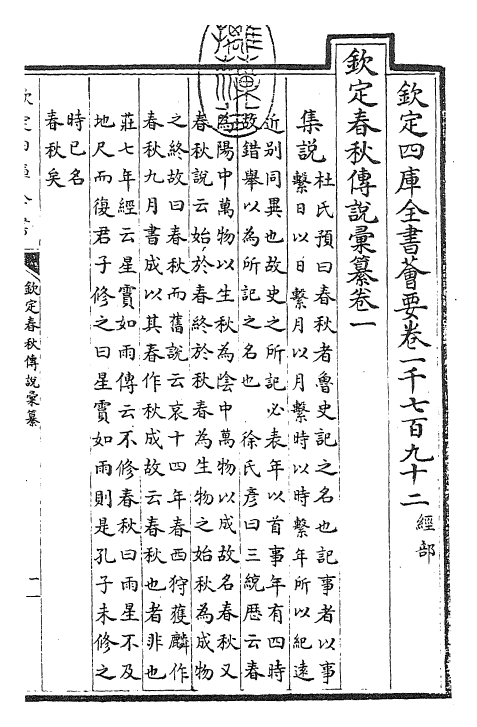 欽定四庫全書薈要卷一千七百九十二 經部
欽定春秋傳說彙纂卷一
集說
杜氏預曰春秋者魯史記之名也記事者以事
繫日以日繫月以月繫時以時繫年所以紀遠
近别同異也故史之所記必表年以首事年有四時
故錯舉以為所記之名也 徐氏彦曰三統厯云春
為陽中萬物以生秋為陰中萬物以成故名春秋又
春秋說云始於春終於秋春為生物之始秋為成物
之終故曰春秋而舊說云哀十四年春西狩獲麟作
春秋九月書成以其春作秋成故云春秋也者非也
莊七年經云星霣如雨傳云不修春秋曰雨星不及
地尺而復君子修之曰星霣如雨則是孔子未修之
時已名
春秋矣
欽定春秋傳說彙纂